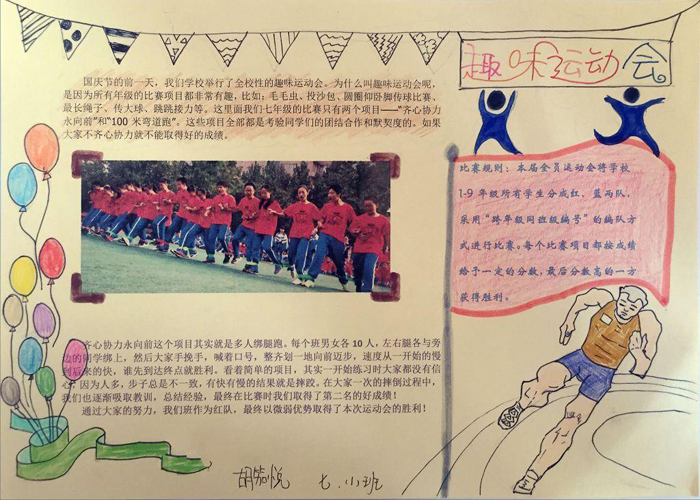 趣味运动会
国庆节的前一天，我们学校举行了全校性的趣味运动会。为什么叫趣味运动会呢，
是因为所有年级的比赛项目都非常有趣，比如：毛毛虫、投沙包、圆圈仰卧传球比赛、
最长绳子、传大球、跳跳接力等。这里面我们七年级的比赛只有两个项目——“齐心协力
永向前”和“100 米弯道跑”。这些项目全部都是考验同学们的团结合作和默契度的。如果
大家不齐心协力就不能取得好的成绩。
齐心协力永向前这个项目其实就是多人绑腿跑。每个班男女各 10 人，左右腿各与旁
边的同学绑上，然后大家手挽手，喊着口号，整齐划一地向前迈步，速度从一开始的慢
到后来的快，谁先到达终点就胜利。看着简单的项目，其实一开始练习时大家都没有信
心，因为人多，步子总是不一致，有快有慢的结果就是摔跤。在大家一次的摔倒过程中，
我们也逐渐吸取教训，总结经验，最终在比赛时我们取得了第二名的好成绩！
通过大家的努力，我们班作为红队，最终以微弱优势取得了本次运动会的胜利！
比赛规则：本届全员运动会将学校
1-9 年级所有学生分成红、蓝两队，
采用“跨年级同班级编号”的编队方
式进行比赛。每个比赛项目都按成绩
给予一定的分数，最后分数高的一方
获得胜利。